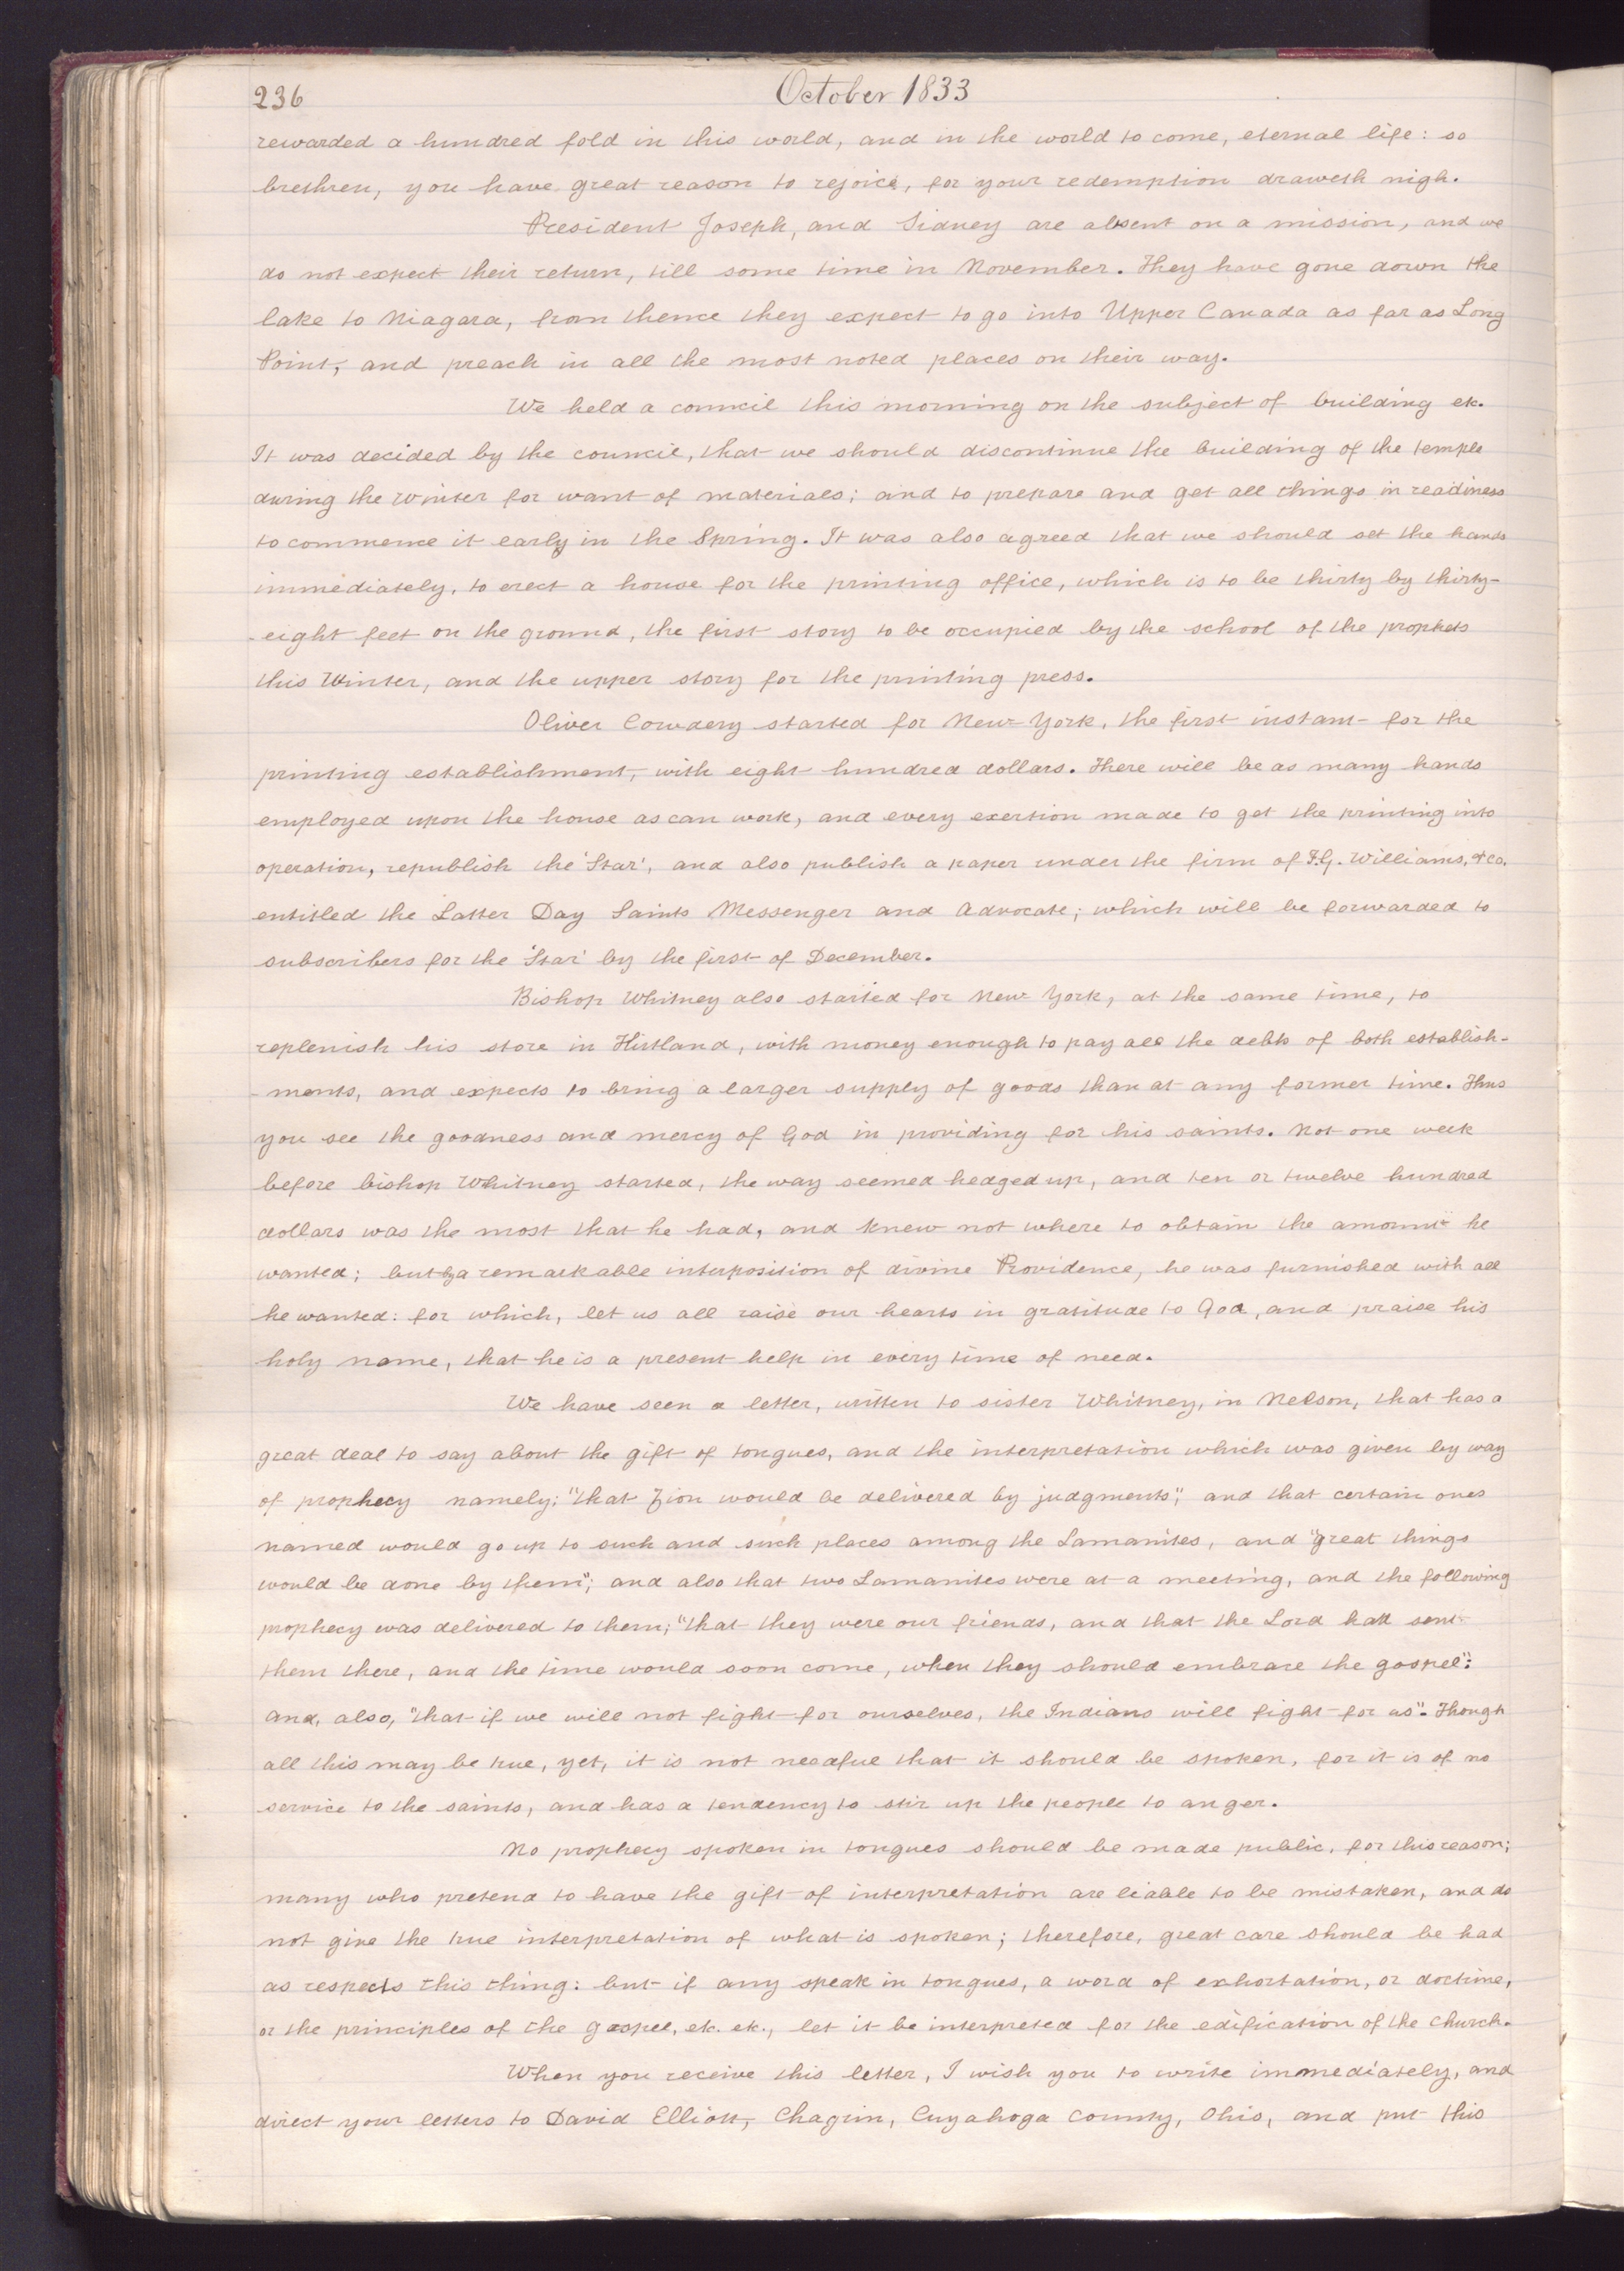 236
October 1833
rewarded a hundred fold in this world, and in the world to come, eternal life: so
brethren, you have great reason to rejoice, for your redemption draweth nigh.
President Joseph, and Sidney are absent on a mission, and we
do not expect their return, till some time in November. They have gone down the
lake to Niagara, from thence they expect to go into Upper Canada as far as Long
Point, and preach in all the most noted places on their way.
We held a council this morning on the subject of building etc.
It was decided by the council, that we should discontinue the building of the temple
during the Winter for want of materials; and to prepare and get all things in readiness
to commence it early in the Spring. It was also agreed that we should set the hands
immediately, to erect a house for the printing office, which is to be thirty by thirty-
-eight feet on the ground, the first story to be occupied by the school of the prophets
this Winter, and the upper story for the printing press.
Oliver Cowdery started for New-York, the first instant for the
printing establishment, with eight hundred dollars. There will be as many hands
employed upon the house as can work, and every exertion made to get the printing into
operation, republish the 'Star', and also publish a paper under the firm of F.G. Williams, & co.
entitled the Latter Day Saints Messenger and Advocate; which will be forwarded to
subscribers for the 'Star' by the first of December.
Bishop Whitney also started for New York, at the same time, to
replenish his store in Kirtland, with money enough to pay all the debts of both establish-
-ments, and expects to bring a larger supply of goods than at any former time. Thus
you see the goodness and mercy of God in providing for his saints. Not one week
before bishop Whitney started, the way seemed hedged up, and ten or twelve hundred
dollars was the most that he had, and knew not where to obtain the amount he
wanted; but by a remarkable interposition of divine Providence, he was furnished with all
he wanted: for which, let us all raise our hearts in gratitude to God, and praise his
holy name, that he is a present help in every time of need.
We have seen a letter, written to sister Whitney, in Nelson, that has a
great deal to say about the gift of tongues, and the interpretation which was given by way
of prophecy namely; "that Zion would be delivered by judgments"; and that certain ones
named would go up to such and such places among the Lamanites, and "great things
would be done by them"; and also that two Lamanites were at a meeting, and the following
prophecy was delivered to them; "that they were our friends, and that the Lord had sent
them there, and the time would soon come, when they should embrace the gospel":
and, also, "that if we will not fight for ourselves, the Indians will fight for us". Though
all this may be true, yet, it is not needful that it should be spoken, for it is of no
service to the saints, and has a tendency to stir up the people to anger.
No prophecy spoken in tongues should be made public, for this reason;
many who pretend to have the gift of interpretation are liable to be mistaken, and do
not give the true interpretation of what is spoken; therefore, great care should be had
as respects this thing: but if any speak in tongues, a word of exhortation, or doctrine,
or the principles of the gospel, etc. etc., let it be interpreted for the edification of the church.
When you receive this letter, I wish you to write immediately, and
direct your letters to David Elliott, Chagrin, Cuyahoga County, Ohio, and put this